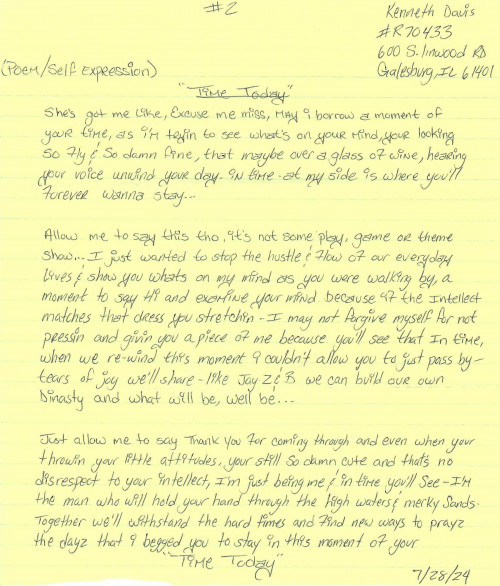 #2
Kenneth Davis
#R70433
600 S. linwood RD
Galesburg, IL 61401
(Poem/Self Expression)
"Time Today"
She's got me like, Excuse me miss, May i borrow a moment of
your time, as i'm tryin to see what's on your mind, your looking
so fly & so damn fine, that maybe over a glass of wine, hearing
your voice unwind your day. in time - at my side is where you'll
forever wanna stay...
Allow me to say this tho, it's not some play, game or theme
show... I just wanted to stop the hustle & flow of our everyday
lives & show you whats on my mind as you were walking by, a
moment to say Hi and examine your mind because if the Intellect
matches that dress you stretchin - I may not forgive myself for not
pressin and givin you a piece of me because you'll see that In time,
when we re-wind this moment i couldn't allow you to just pass by -
tears of joy we'll share - like Jay Z & B we can build our own
Dinasty and what will be, well be...
Just allow me to say Thank you for coming through and even when your
throwin your little attitudes, your still so damn cute and that's no
disrespect to your intellect, I'm just being me & in time you'll see - I'm
the man who will hold your hand through the high waters & merky sands.
Together we'll withstand the hard times and find new ways to prayz
the dayz that i begged you to stay in this moment of your
"Time Today"
7/28/24